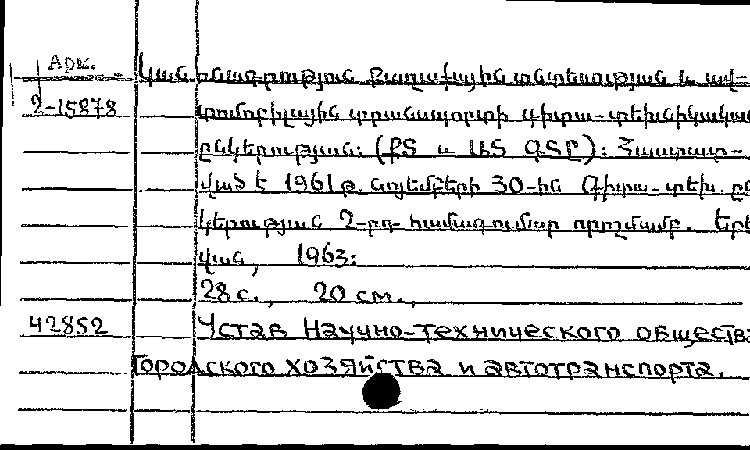 Арм.
2-15878
Կանոնադրություն Քաղաքային տնտեսության և ավ-
տոմոբիլային տրանսպորտի գիտա-տեխնիկական
ընկերության: (ՔՏ և ԱՏ ԳՏԸ): Հաստատ-
ված է 1961 թ. նոյեմբերի 30-ին Գիտա-տեխ. ըն
կերության 2-րդ համագումար որոշմամբ. Երե
վան, 1963:
28 с., 20 см.,
42852 Устав Научно-технического общества
Городского хозяйства и автотранспорта.